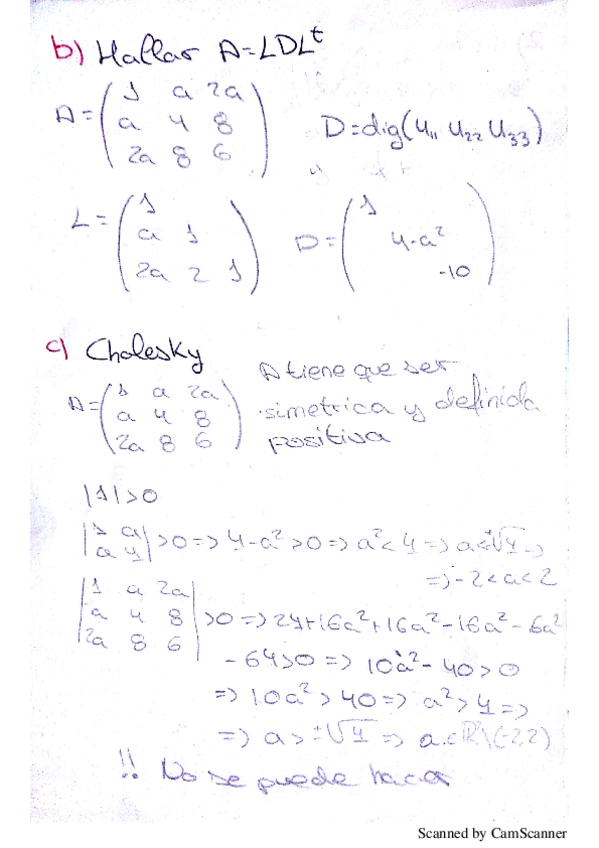 b) Hallar A=LDLᵗ
A = ( 1 a 2a
a 4 8
2a 8 6 )
D=dig(u₁₁ u₂₂ u₃₃)
L = ( 1
a 1
2a 2 1 )
D = ( 1
4-a²
-10 )
c) Cholesky
A tiene que ser
simetrica y definida
positiva
A= ( 1 a 2a
a 4 8
2a 8 6 )
|1|>0
| 1 a
a 4 | >0 => 4-a²>0 => a²<4 => a<±√4 =>
=> -2<a<2
| 1 a 2a
a 4 8
2a 8 6 | >0 => 24+16a²+16a²-16a²-6a²
-64>0 => 10a²-40>0
=> 10a²>40 => a²>4 =>
=> a>±√4 => a∈ℝ\(-2,2)
!! No se puede hacer
Scanned by CamScanner